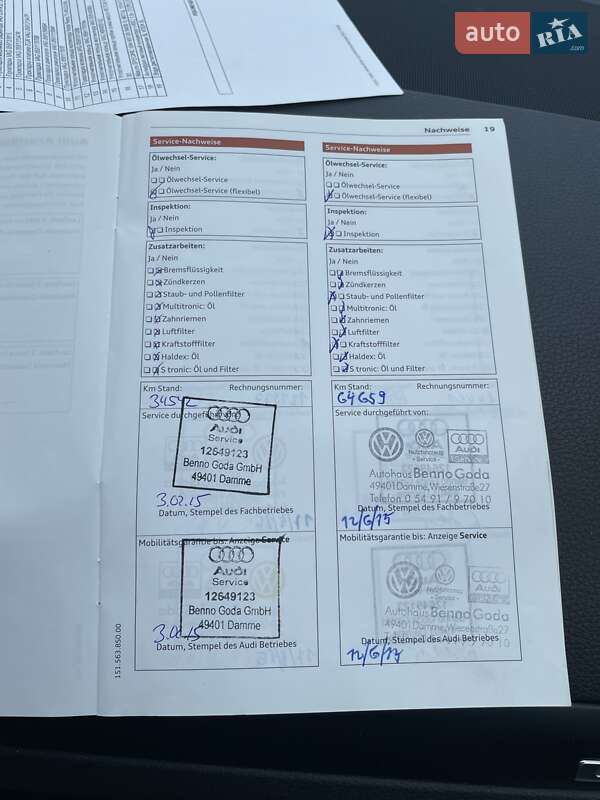 auto RIA .com
Nachweise 19
Service-Nachweise
Ölwechsel-Service:
Ja / Nein
Ölwechsel-Service
Ölwechsel-Service (flexibel)
Inspektion:
Ja / Nein
Inspektion
Zusatzarbeiten:
Ja / Nein
Bremsflüssigkeit
Zündkerzen
Staub- und Pollenfilter
Multitronic: Öl
Zahnriemen
Luftfilter
Kraftstofffilter
Haldex: Öl
S tronic: Öl und Filter
Km Stand: Rechnungsnummer:
34542
Service durchgeführt von:
Audi
Service
12649123
Benno Goda GmbH
49401 Damme
3.02.15
Datum, Stempel des Fachbetriebes
Mobilitätsgarantie bis: Anzeige Service
Audi
Service
12649123
Benno Goda GmbH
49401 Damme
Datum, Stempel des Audi Betriebes
151.563.850.00
Service-Nachweise
Ölwechsel-Service:
Ja / Nein
Ölwechsel-Service
Ölwechsel-Service (flexibel)
Inspektion:
Ja / Nein
Inspektion
Zusatzarbeiten:
Ja / Nein
Bremsflüssigkeit
Zündkerzen
Staub- und Pollenfilter
Multitronic: Öl
Zahnriemen
Luftfilter
Kraftstofffilter
Haldex: Öl
S tronic: Öl und Filter
Km Stand: Rechnungsnummer:
64659
Service durchgeführt von:
Nutzfahrzeuge
Service
Audi
Service
Autohaus Benno Goda
49401 Damme, Wiesenstraße 27
Telefon 0 54 91 / 9 70 10
Datum, Stempel des Fachbetriebes
12/6/15
Mobilitätsgarantie bis: Anzeige Service
Audi
Autohaus Benno Goda
49401 Damme, Wiesenstraße 27
Datum, Stempel des Audi Betriebes
12/6/17